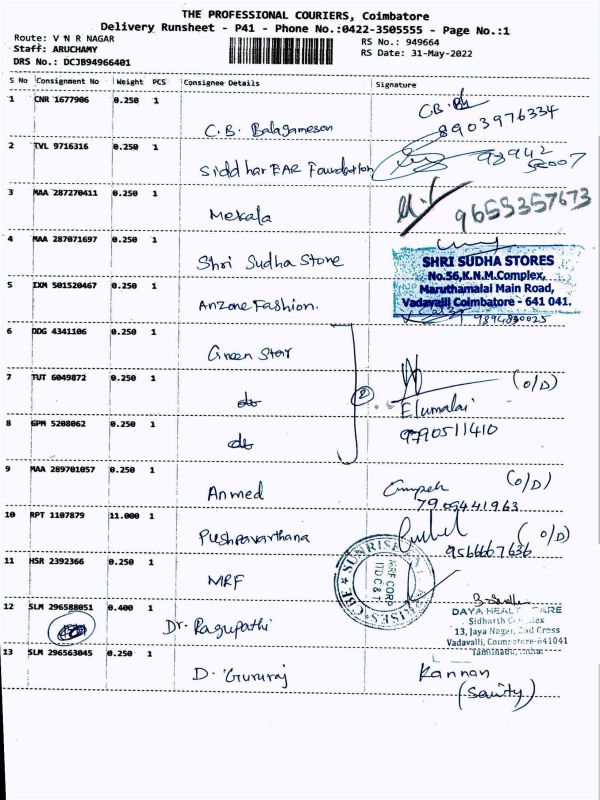 THE PROFESSIONAL COURIERS, Coimbatore
Delivery Runsheet - P41 - Phone No.:0422-3505555 - Page No.:1
Route: V N R NAGAR
RS No.: 949664
Staff: ARUCHAMY
RS Date: 31-May-2022
DRS No.: DCJB94966401
S No Consignment No Weight PCS Consignee Details Signature
1 CNR 1677906 0.250 1
C.B.
8903976334
C.B. Balaganesan
2 TVL 9716316 0.250 1
Siddhar EAR Foundation
98942
3 MAA 287270411 0.250 1
Mekala
9655357673
4 MAA 287071697 0.250 1
Shri Sudha Stone
SHRI SUDHA STORES
No.56,K.N.M.Complex,
Maruthamalai Main Road,
Vadavalli Coimbatore - 641 041.
5 IXM 501520467 0.250 1
Anzone Fashion.
9894830025
6 DDG 4341106 0.250 1
Green Star
7 TUT 6049872 0.250 1
do
(O/D)
Elumalai
8 GPM 5208062 0.250 1
do
9790511410
9 MAA 289701057 0.250 1
Anmed
(O/D)
7909441963
10 RPT 1107879 11.000 1
Pushpavarthana
(O/D)
9566667636
11 HSR 2392366 0.250 1
MRF
SUNRISE
MRF CORP
LTD C & T
12 SLM 296588051 0.400 1
Dr. Ragupathi
DAYA HEALTH CARE
Sidharth Complex
13, Jaya Nagar, 2nd Cross
Vadavalli, Coimbatore-641041
Tamilnadu, India.
13 SLM 296563045 0.250 1
D. Gururaj
Kannan
(Security)